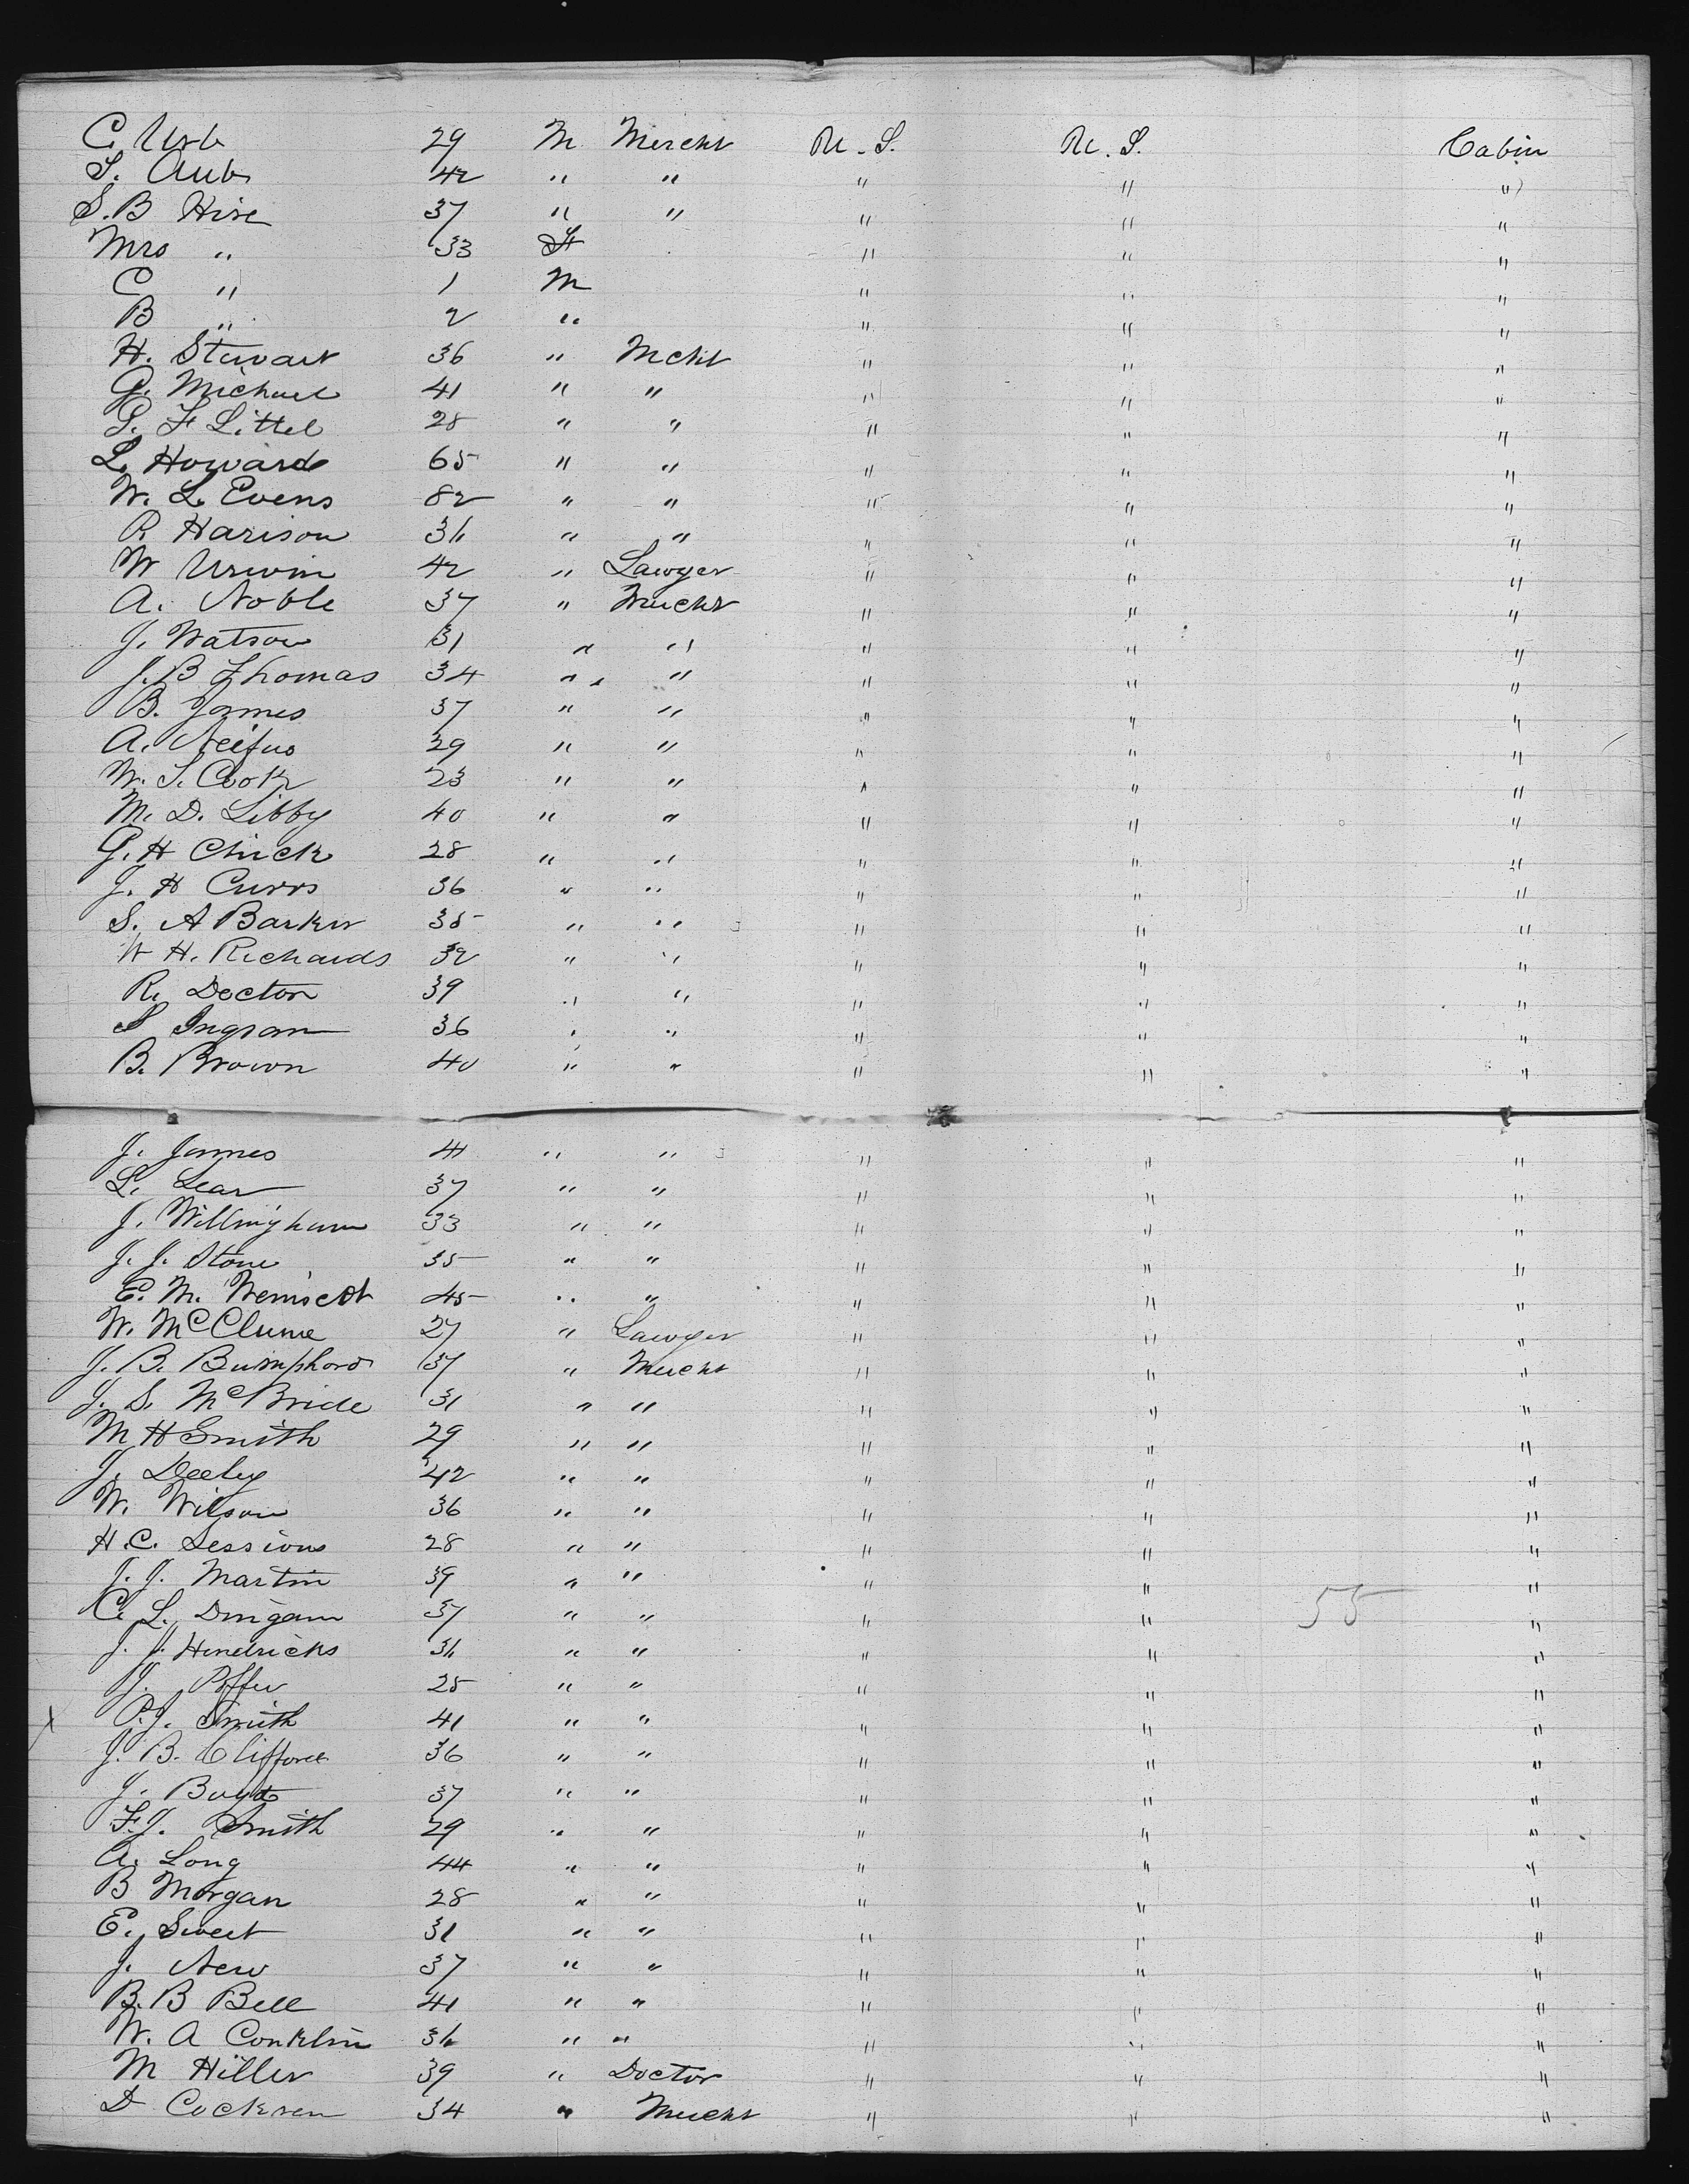 C. Urb 29 M Mercht U.S. U.S. Cabin
S. Aub 42 " " " " "
S. B Hise 37 " " " " "
Mrs " 33 F " " "
C " 1 M " " "
B " 2 " " " "
H. Stewart 36 " Mcht " " "
G. Michael 41 " " " " "
G. F Littel 28 " " " " "
L. Howard 65 " " " " "
W. L. Evens 82 " " " " "
R. Harison 36 " " " " "
W Urwin 42 " Lawyer " " "
A. Noble 37 " Mercht " " "
J. Watson 31 " " " " "
J. B Thomas 34 " " " " "
B. James 37 " " " " "
A. 29 " " " " "
W. S. Cook 23 " " " " "
M. D. Libby 40 " " " " "
G. H Chick 28 " " " " "
J. H Currs 36 " " " " "
S. A Barker 35 " " " " "
W H. Richards 32 " " " " "
R. Doctor 39 " " " " "
S Ingram 36 " " " " "
B. Brown 40 " " " " "
J. James 41 " " " " "
L. Lear 37 " " " " "
J. Willingham 33 " " " " "
J. J. Stone 35 " " " " "
E. M. 45 " " " " "
W. McClune 27 " Lawyer " " "
J. B. Bumphord 37 " Mercht " " "
J. S. McBride 31 " " " " "
M H Smith 29 " " " " "
J. Deeley 42 " " " " "
W. Wilson 36 " " " " "
H. C. Sessions 28 " " " " "
J. J. Martin 39 " " " " "
C. L. Dingam 37 " " " 55 "
J. J. Hendricks 36 " " " " "
J. 25 " " " " "
X P. J. Smith 41 " " " " "
J. B. Clifford 36 " " " " "
J. Boyd 37 " " " " "
F. J. Smith 29 " " " " "
A. Long 44 " " " " "
B Morgan 28 " " " " "
E. Sweet 31 " " " " "
J. New 37 " " " " "
B. B Bell 41 " " " " "
W. A Conklin 36 " " " " "
M Hiller 39 " Doctor " " "
D Cockren 34 " Mercht " " "